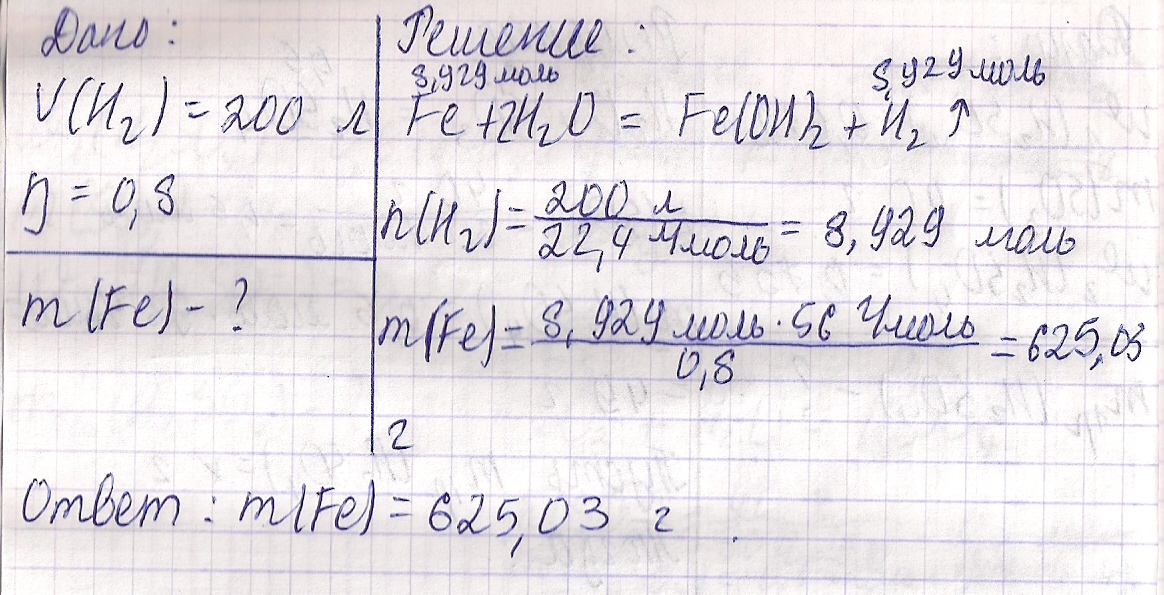 Дано:
V(H₂) = 200 л
η = 0,8
m(Fe) - ?
Решение:
8,929 моль 8,929 моль
Fe + 2H₂O = Fe(OH)₂ + H₂ ↑
n(H₂) = 200 л / 22,4 л/моль = 8,929 моль
m(Fe) = 8,929 моль · 56 г/моль / 0,8 = 625,03
г
Ответ: m(Fe) = 625,03 г.